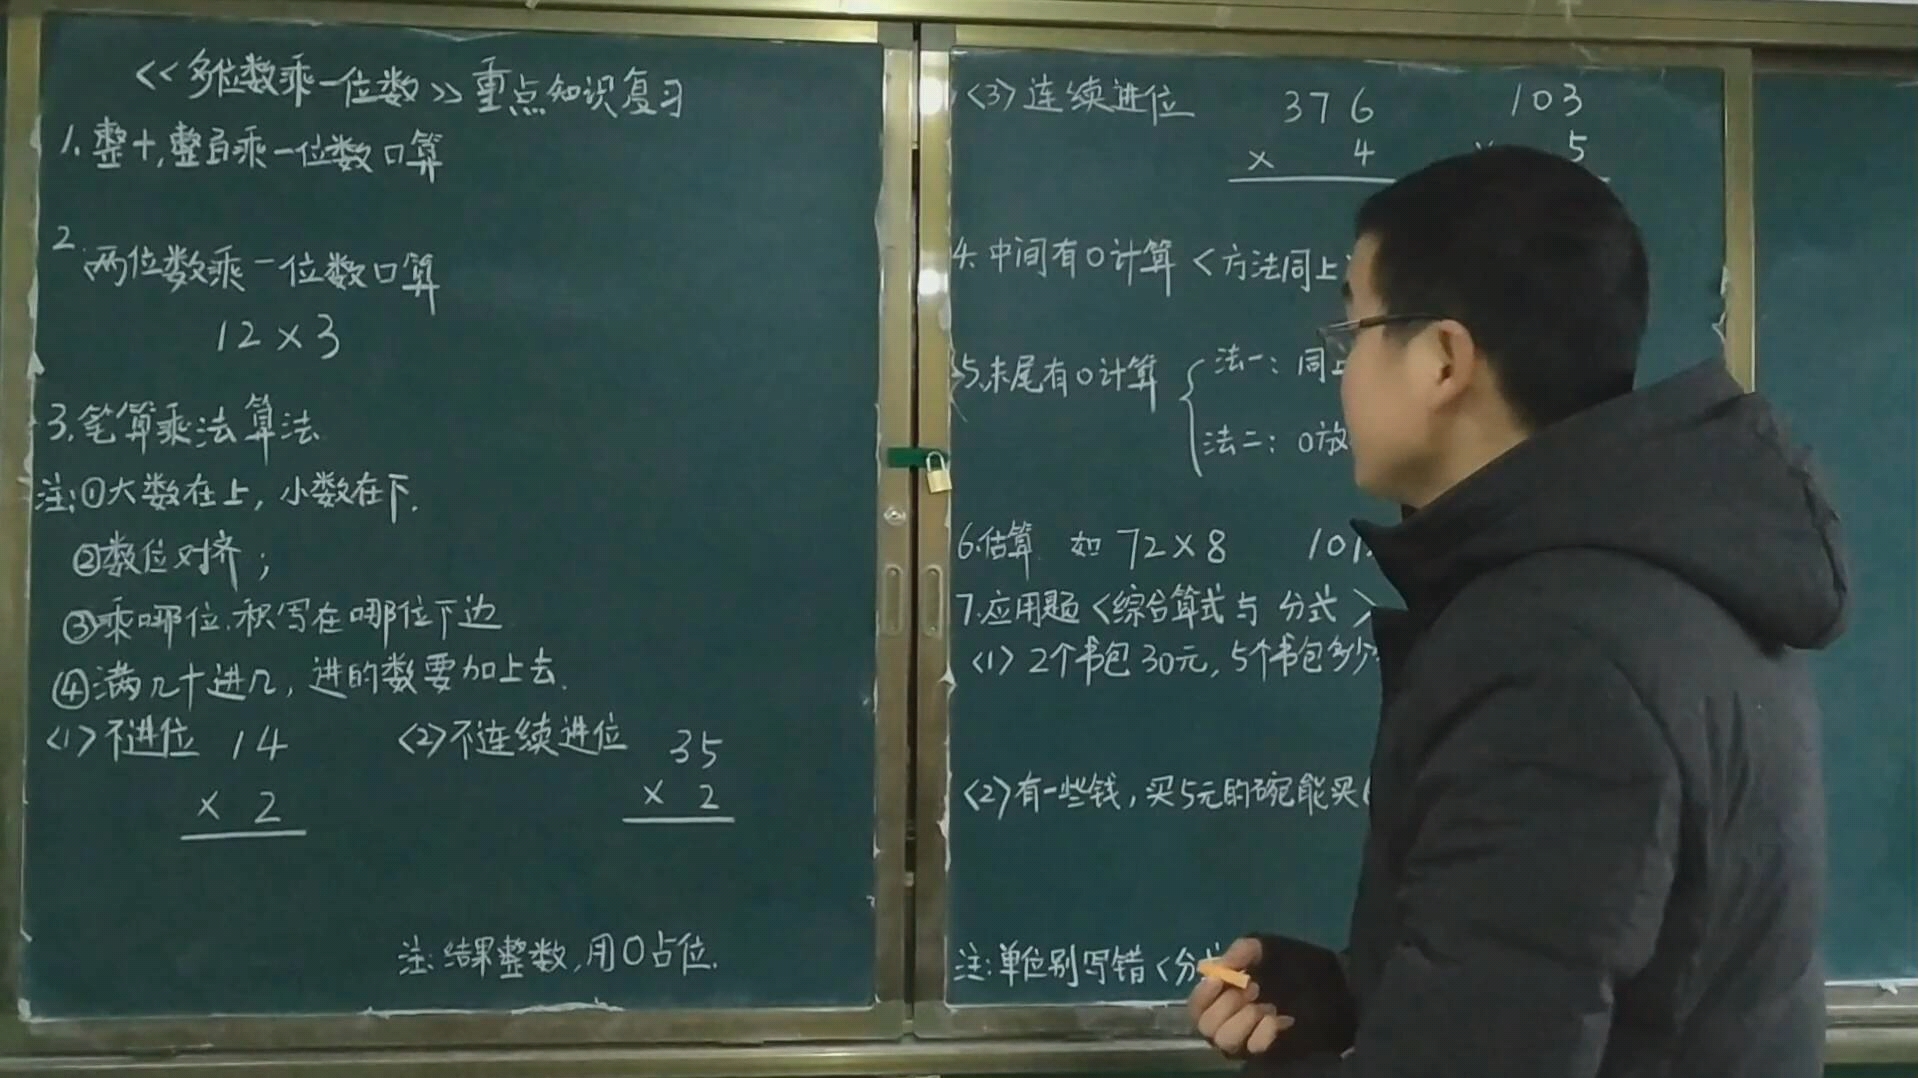 <<多位数乘一位数>>重点知识复习
1.整十,整百乘一位数口算
2.两位数乘一位数口算
12×3
3.笔算乘法算法
注:①大数在上,小数在下.
②数位对齐;
③乘哪位.积写在哪位下边
④满几十进几,进的数要加上去.
<1>不进位 14
× 2
<2>不连续进位 35
× 2
注:结果整数,用0占位.
<3>连续进位 376 103
× 4 5
4.中间有0计算<方法同上
5.末尾有0计算
法一:同上
法二:0放
6.估算 如 72×8 101
7.应用题<综合算式与 分式>
<1>2个书包30元,5个书包多少
<2>有一些钱,买5元的碗能买
注:单位别写错<分式